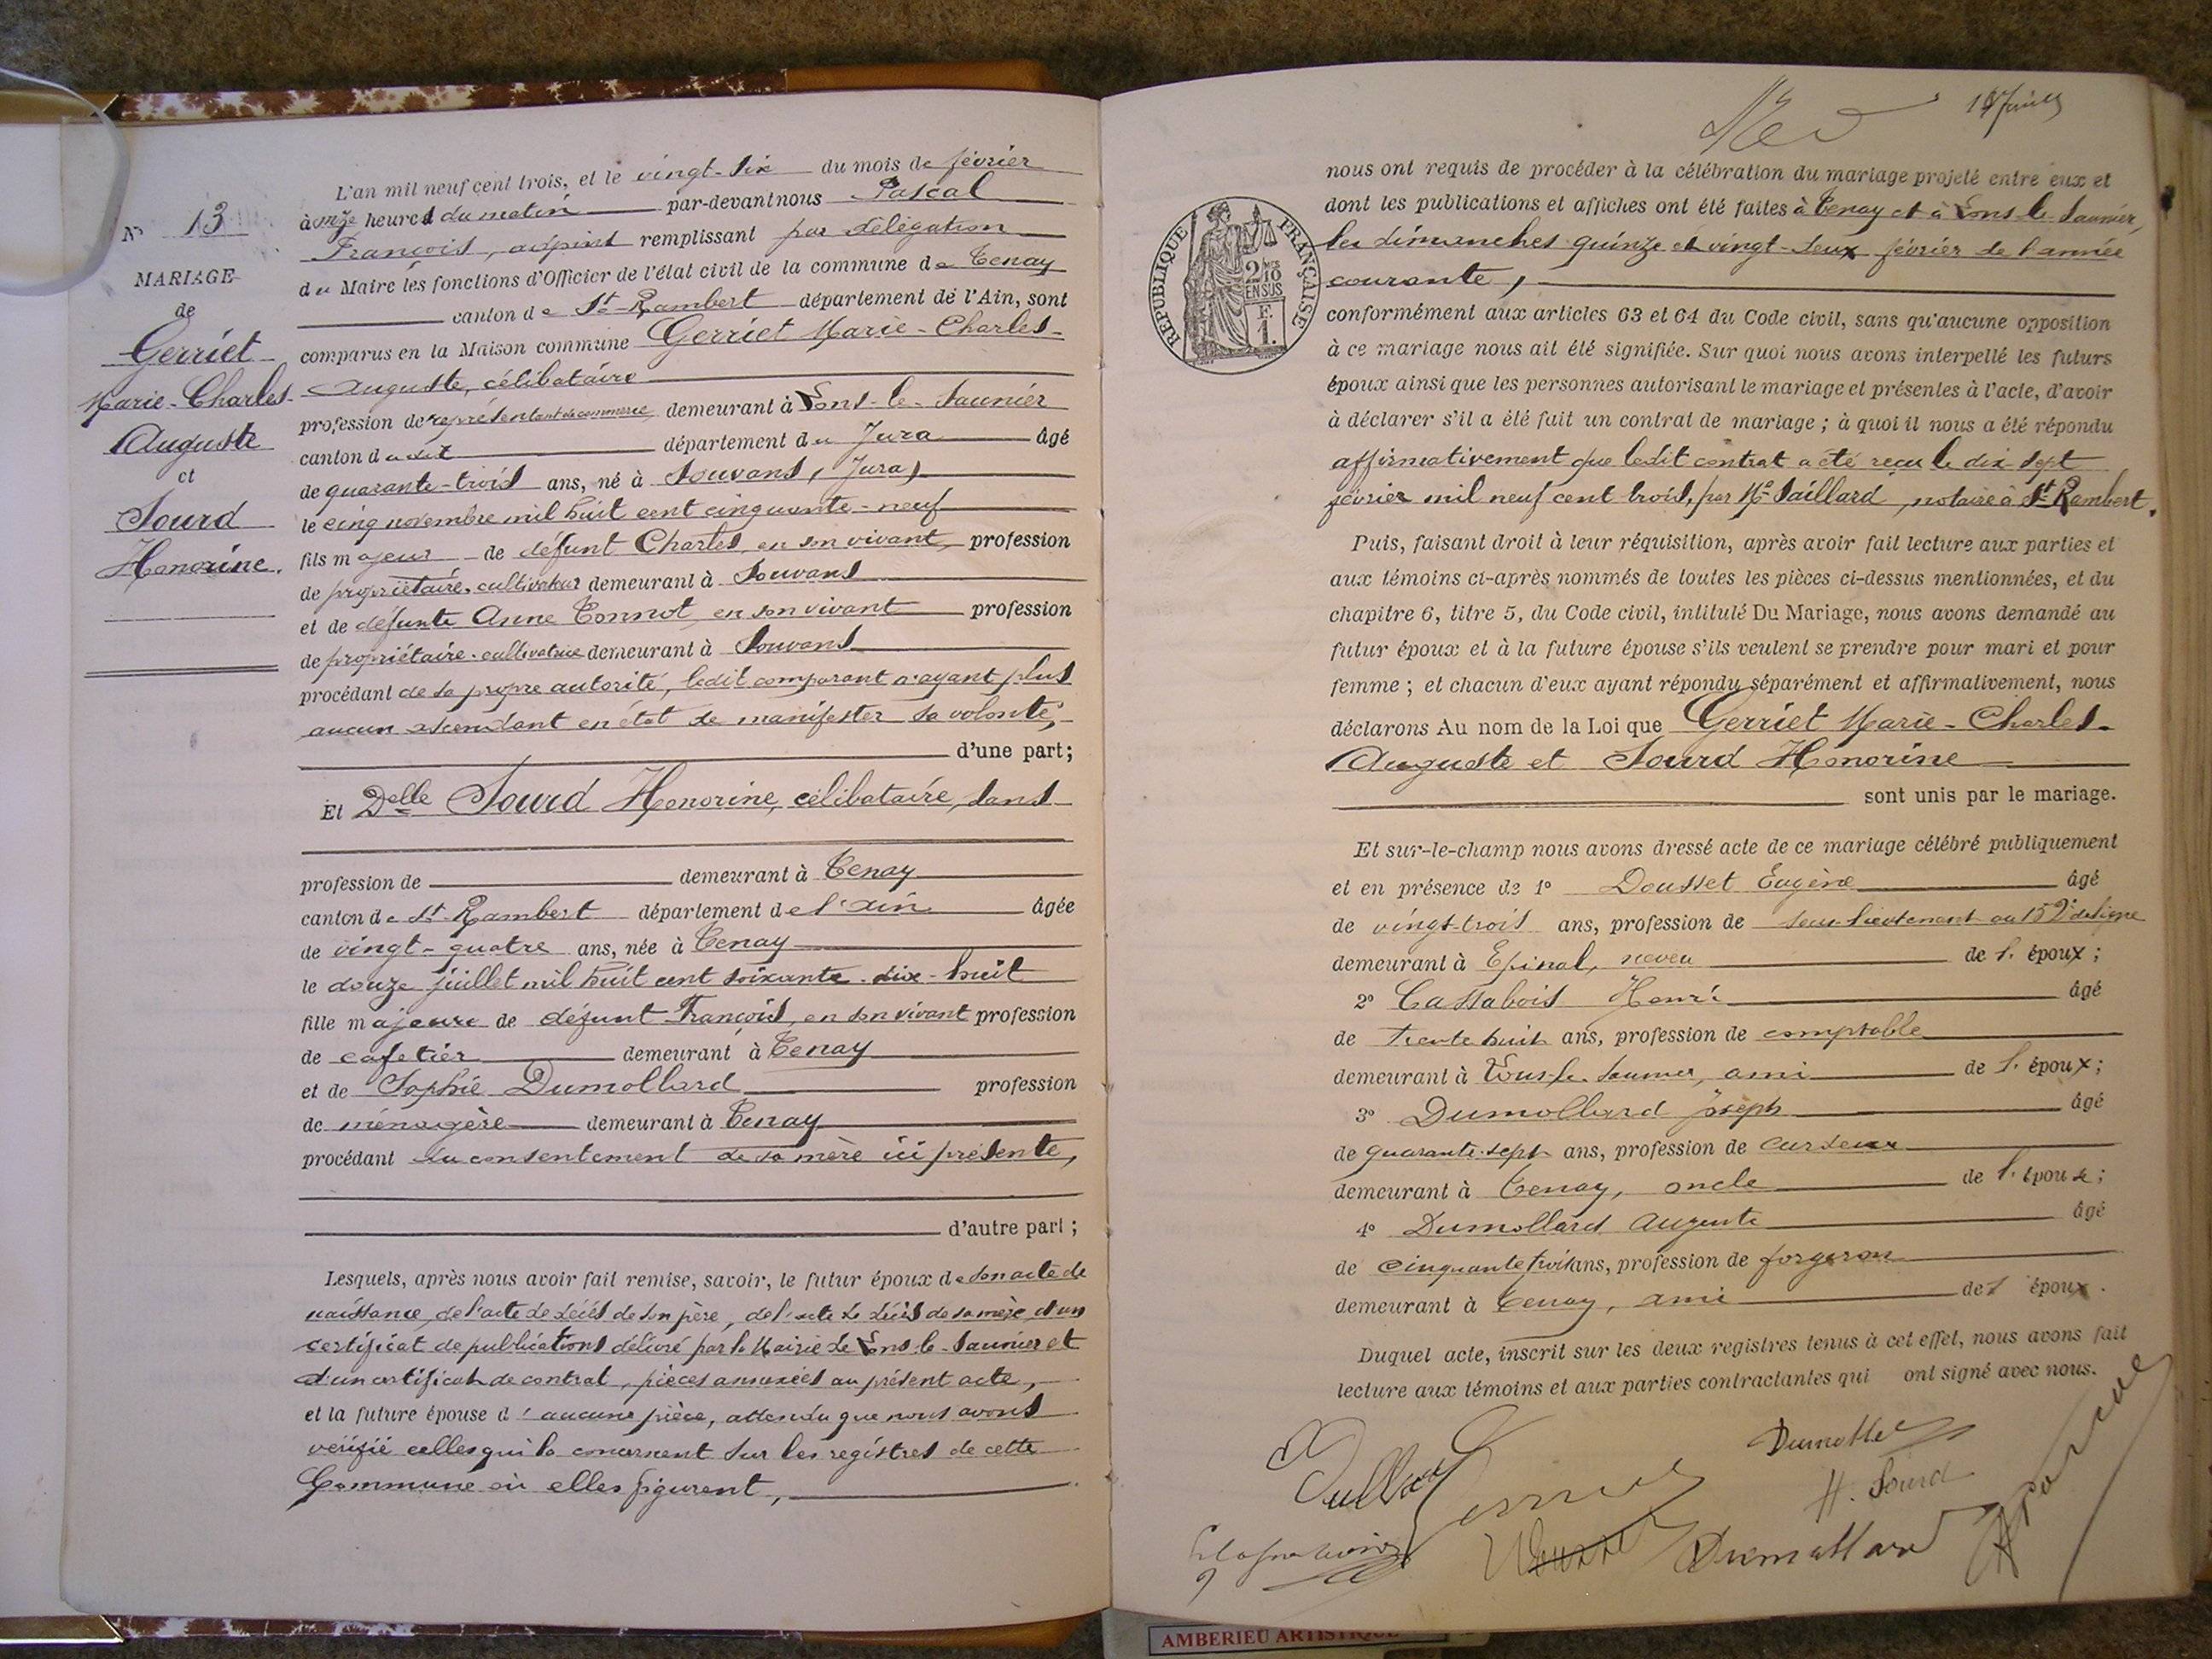 N° 13
MARIAGE
de
Gerriet
Marie-Charles-
Auguste
et
Sourd
Honorine.
L'an mil neuf cent trois, et le vingt-six du mois de février
à onze heures du matin par-devant nous Pascal
François, adjoint remplissant par délégation
du Maire les fonctions d'Officier de l'état civil de la commune de Tenay
canton de St-Rambert département de l'Ain, sont
comparus en la Maison commune Gerriet Marie-Charles-
Auguste, célibataire
profession de représentant de commerce demeurant à Lons-le-Saunier
canton du dit département du Jura âgé
de quarante-trois ans, né à Souvans, (Jura)
le cinq novembre mil huit cent cinquante-neuf
fils majeur de défunt Charles, en son vivant profession
de propriétaire-cultivateur demeurant à Souvans
et de défunte Anne Tonnot, en son vivant profession
de propriétaire-cultivatrice demeurant à Souvans
procédant de sa propre autorité, ledit comparant n'ayant plus
aucun ascendant en état de manifester sa volonté,
d'une part;
Et Delle Sourd Honorine, célibataire, sans
profession de demeurant à Tenay
canton de St-Rambert département de l'Ain âgée
de vingt-quatre ans, née à Tenay
le douze juillet mil huit cent soixante-dix-huit
fille majeure de défunt François, en son vivant profession
de cafetier demeurant à Tenay
et de Sophie Dumollard profession
de ménagère demeurant à Tenay
procédant du consentement de sa mère ici présente,
d'autre part;
Lesquels, après nous avoir fait remise, savoir, le futur époux de son acte de
naissance, de l'acte de décès de son père, de l'acte de décès de sa mère, d'un
certificat de publications délivré par la Mairie de Lons-le-Saunier et
d'un certificat de contrat, pièces annexées au présent acte,
et la future épouse d'aucune pièce, attendu que nous avons
vérifié celles qui la concernent sur les registres de cette
Commune où elles figurent,
REPUBLIQUE FRANÇAISE
2/10
EN SUS
F.
1.
nous ont requis de procéder à la célébration du mariage projeté entre eux et
dont les publications et affiches ont été faites à Tenay et à Lons-le-Saunier,
les dimanches quinze et vingt-deux février de l'année
courante,
conformément aux articles 63 et 64 du Code civil, sans qu'aucune opposition
à ce mariage nous ait été signifiée. Sur quoi nous avons interpellé les futurs
époux ainsi que les personnes autorisant le mariage et présentes à l'acte, d'avoir
à déclarer s'il a été fait un contrat de mariage; à quoi il nous a été répondu
affirmativement que ledit contrat a été reçu le dix-sept
février mil neuf cent trois, par Me Saillard, notaire à St-Rambert.
Puis, faisant droit à leur réquisition, après avoir fait lecture aux parties et
aux témoins ci-après nommés de toutes les pièces ci-dessus mentionnées, et du
chapitre 6, titre 5, du Code civil, intitulé Du Mariage, nous avons demandé au
futur époux et à la future épouse s'ils veulent se prendre pour mari et pour
femme; et chacun d'eux ayant répondu séparément et affirmativement, nous
déclarons Au nom de la Loi que Gerriet Marie-Charles-
Auguste et Sourd Honorine
sont unis par le mariage.
Et sur-le-champ nous avons dressé acte de ce mariage célébré publiquement
et en présence de 1° Dousset Eugène âgé
de vingt-trois ans, profession de sous-lieutenant au 152e de ligne
demeurant à Epinal, neveu de l'époux;
2° Cassabois Henri âgé
de trente huit ans, profession de comptable
demeurant à Lons-le-Saunier, ami de l'époux;
3° Dumollard Joseph âgé
de quarante-sept ans, profession de cardeur
demeurant à Tenay, oncle de l'épouse;
4° Dumollard Auguste âgé
de cinquante trois ans, profession de forgeron
demeurant à Tenay, ami de l'époux.
Duquel acte, inscrit sur les deux registres tenus à cet effet, nous avons fait
lecture aux témoins et aux parties contractantes qui ont signé avec nous.
H. Sourd
Dumollard
AMBERIEU ARTISTIQUE